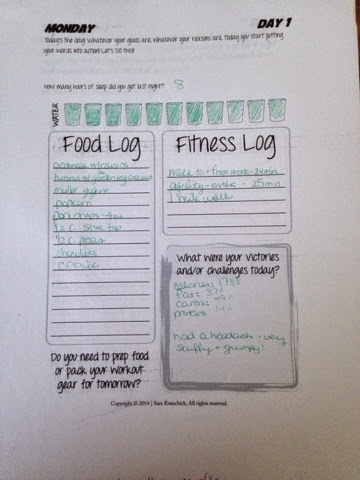 MONDAY
DAY 1
Today's the day! Whatever your goals are, whatever your reasons are, today you start putting
your words into action! Let's do this!
How many hours of sleep did you get last night? 8
WATER
Food Log
oatmeal w/craisins
hummus w/ garden veg crackers
muller yogurt
popcorn
pork chops - 4oz
1/2 c. stove top
1/2 c. peas
chocolate
cookies
Do you need to prep food
or pack your workout
gear for tomorrow?
Fitness Log
walk to + from work - 24 min
- 25 min
1 mile walk
What were your victories
and/or challenges today?
calories: 1785
fat: 37%
carbs: 49%
protein: 14%
had a headache + very
stuffy + grumpy!
Copyright © 2014 | Sara Evanchick, All rights reserved.